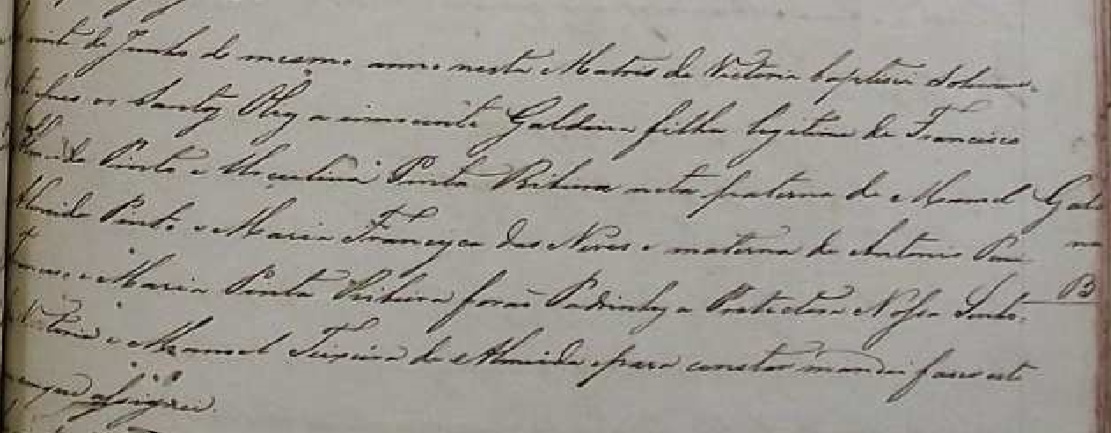 vinte de Junho do mesmo anno nesta Matris da Victoria baptisei Solemne-
te e pus os Santos Oleos a innocente Galdina filha legitima de Francisco
Almeida Pinto e Pinto Ribeira neta paterna de Manoel
Almeida Pinto e Maria Francisca das Neves e materna de Antonio
e Maria Pinta Ribeira foraõ Padrinhos a Protectora Nossa Senho-
Victoria e Manoel Teixeira de Almeida e para constar mandei faser este
em que assignei.
Galdi
na
B